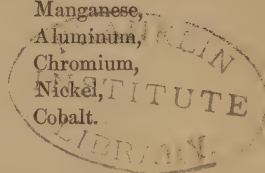 Manganese,
Aluminum,
Chromium,
Nickel,
Cobalt.
INSTITUTE
LIBRARY.